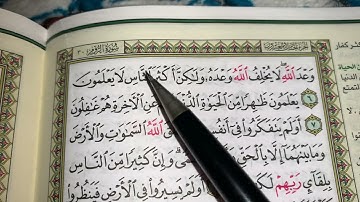 سورة الروم
وَعْدَ اللَّهِ لَا يُخْلِفُ اللَّهُ وَعْدَهُ وَلَٰكِنَّ أَكْثَرَ النَّاسِ لَا يَعْلَمُونَ
٦ يَعْلَمُونَ ظَاهِرًا مِّنَ الْحَيَوٰةِ الدُّنْيَا عَنِ الْآخِرَةِ هُمْ غَافِلُونَ
٧ أَوَلَمْ يَتَفَكَّرُوا۟ فِىٓ أَنفُسِهِم اللَّهُ السَّمَٰوَٰتِ وَالْأَرْضَ
وَمَا بَيْنَهُمَآ إِلَّا بِالْحَقِّ وَإِنَّ كَثِيرًا مِّنَ النَّاسِ
بِلِقَآئِ رَبِّهِمْ أَوَلَمْ يَسِيرُوا۟ فِى الْأَرْضِ فَيَنظُرُوا۟